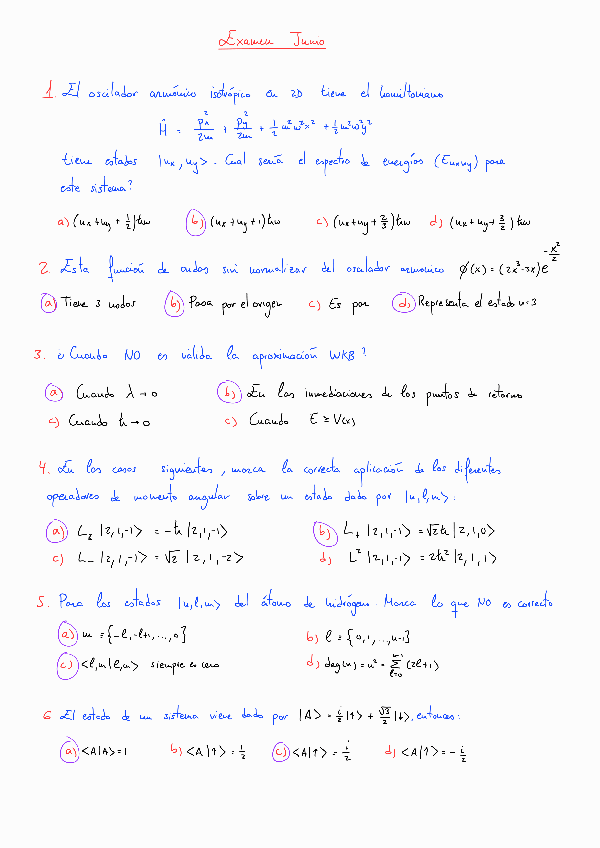 Examen Junio
1 El oscilador armónico isotrópico en 2D tiene el hamiltoniano
Ĥ = px²/2m + py²/2m + 1/2 m²w²x² + 1/2 m²w²y²
tiene estados |nx, ny>. Cual sería el espectro de energías (Enxny) para
este sistema?
a) (nx+ny + 1/2)ħw b) (nx+ny+1)ħw c) (nx+ny+2/3)ħw d) (nx+ny+3/2)ħw
2. Esta función de ondas sin normalizar del oscilador armonico ∅(x) = (2x³-3x)e^(-x²/2)
a) Tiene 3 nodos b) Pasa por el origen c) Es par d) Representa el estado n=3
3. ¿Cuando NO es válida la aproximación WKB?
a) Cuando λ→0 b) En las inmediaciones de los puntos de retorno
c) Cuando ħ→0 c) Cuando E≥V(x)
4. En los casos siguientes, marca la correcta aplicación de los diferentes
operadores de momento angular sobre un estado dado por |n,l,m>:
a) Lz |2,1,-1> = -ħ |2,1,-1> b) L+ |2,1,-1> = √2ħ |2,1,0>
c) L- |2,1,-1> = √2 |2,1,-2> d) L² |2,1,-1> = 2ħ² |2,1,1>
5. Para los estados |n,l,m> del átomo de hidrógen. Marca lo que NO es correcto
a) m = {-l,-l+1,...,0} b) l = {0,1,...,n-1}
c) <l,m|l,m> siempre es cero d) deg(n) = n² = Σ_{l=0}^{n-1} (2l+1)
6 El estado de un sistema viene dado por |A> = i/2|↑> + √3/2|↓>, entonces:
a) <A|A>=1 b) <A|↑> = 1/2 c) <A|↑> = i/2 d) <A|↑> = -i/2